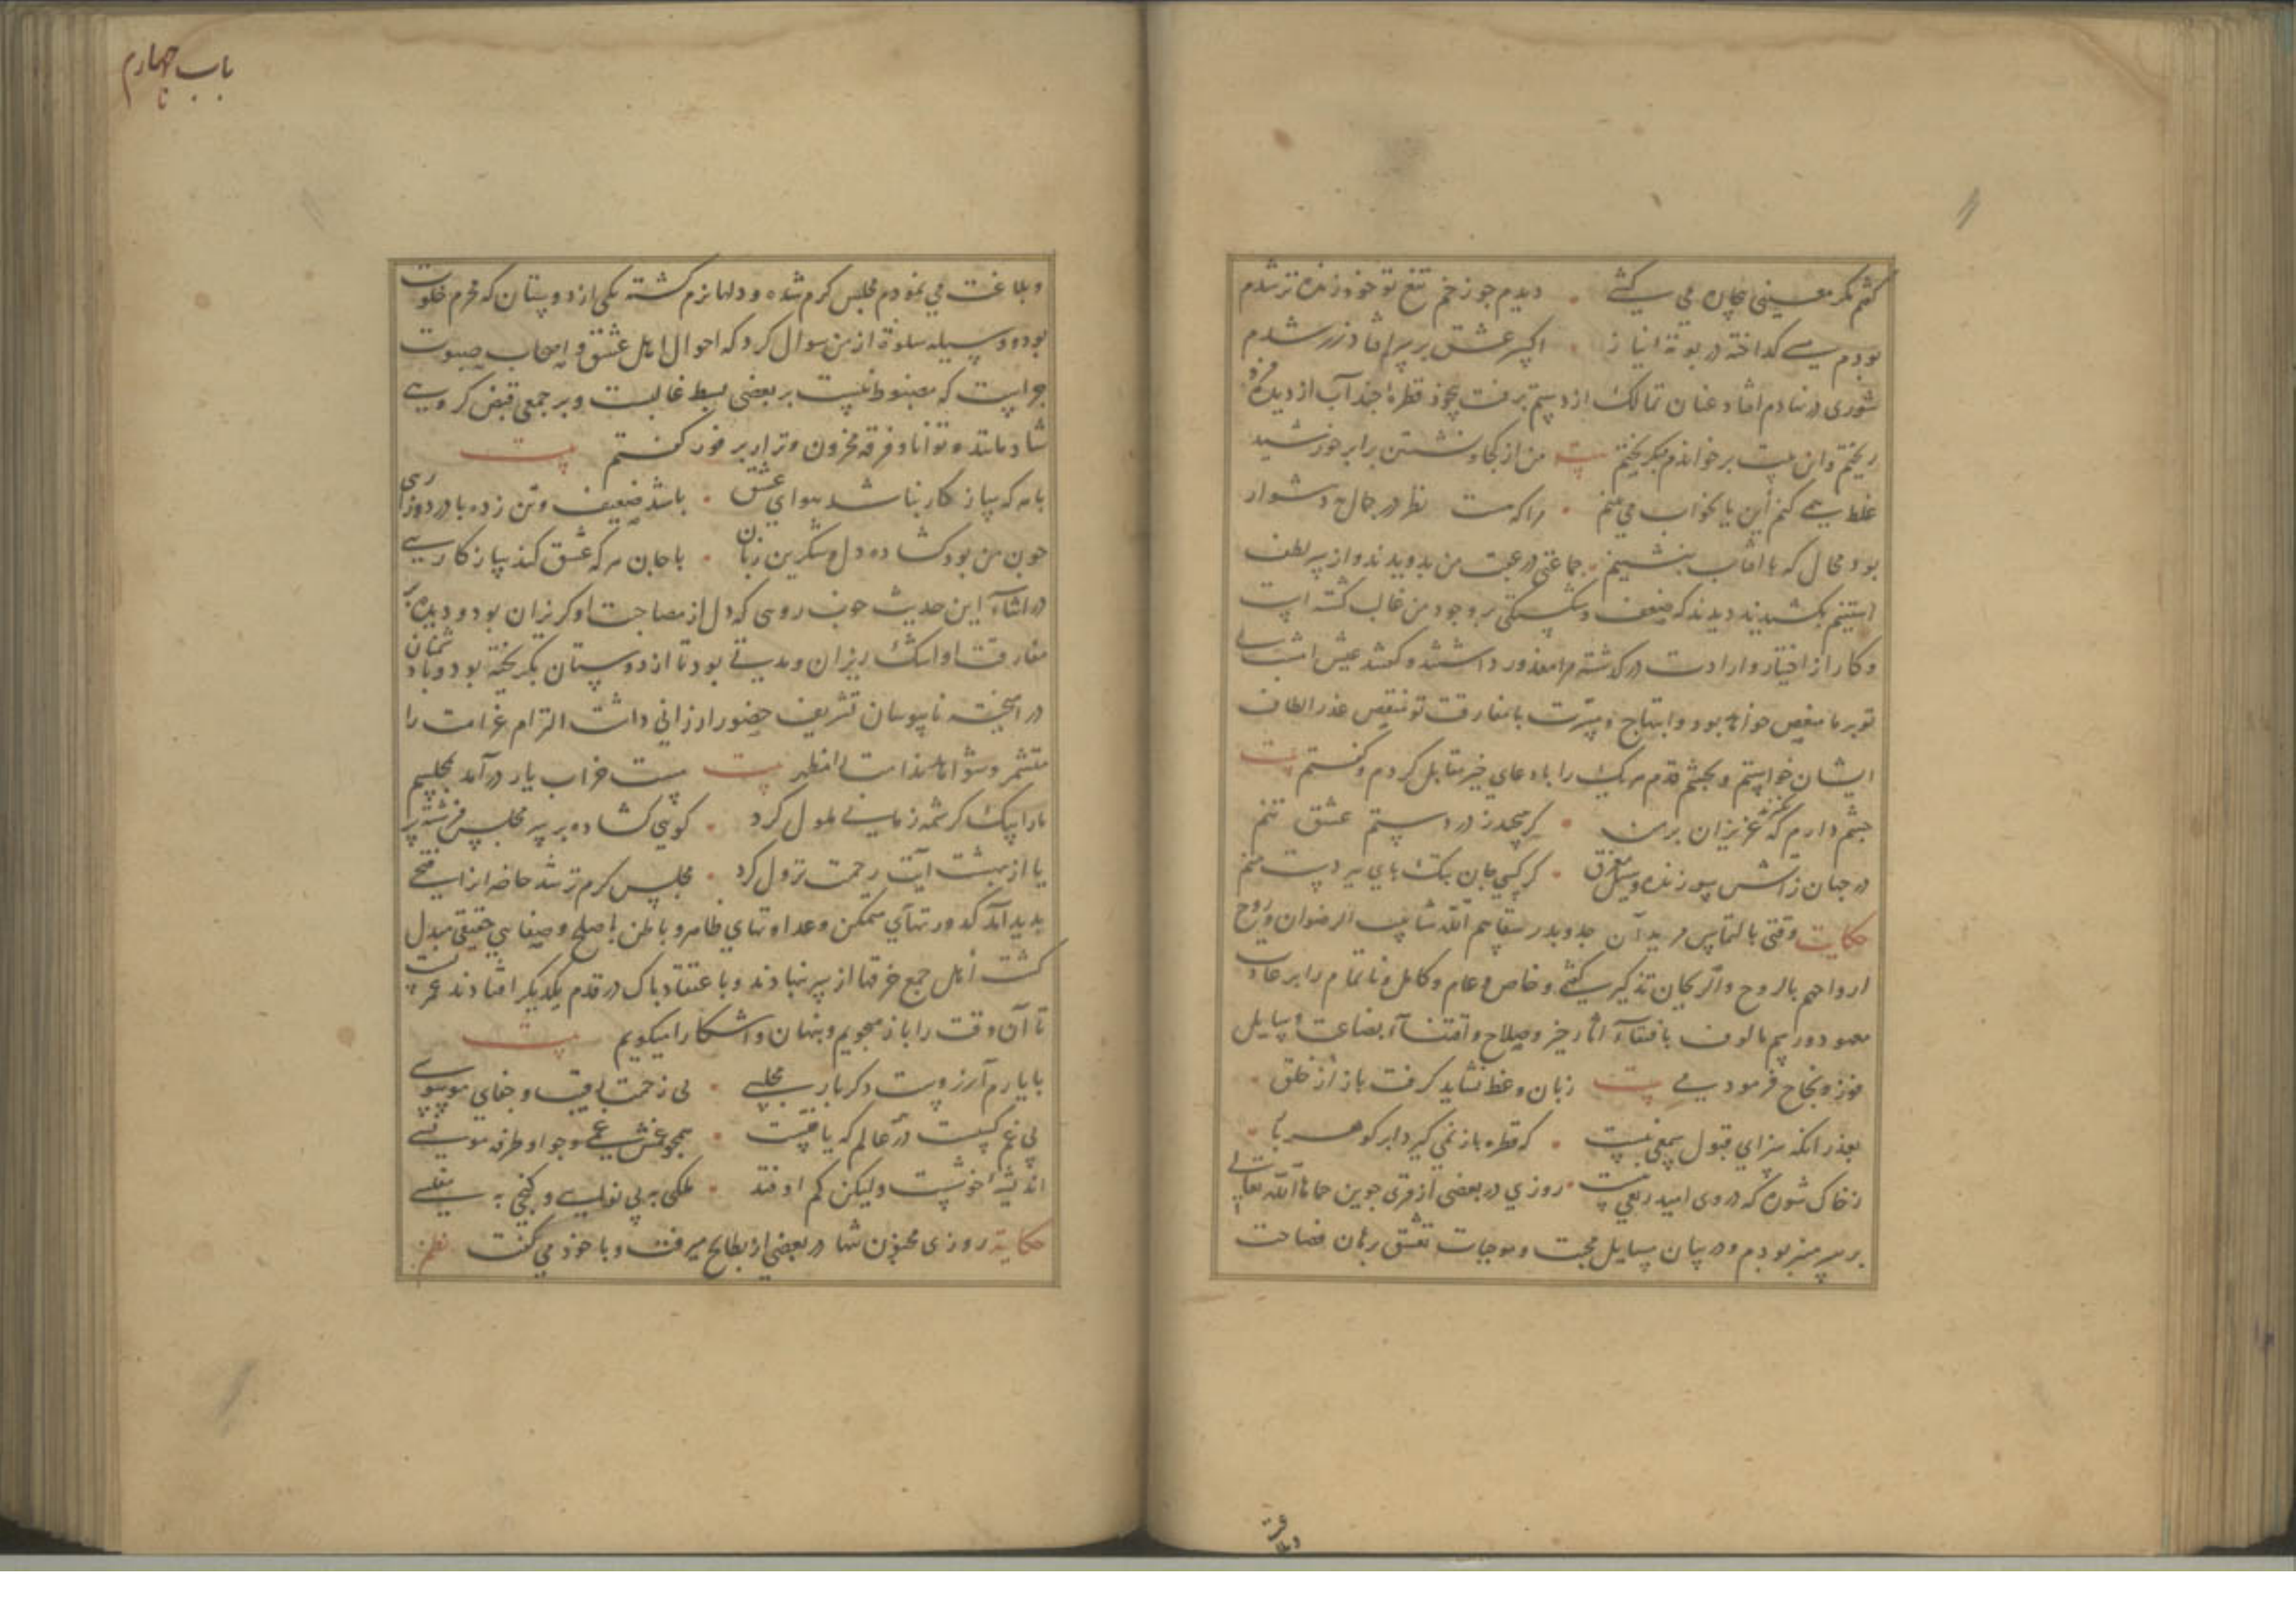 گفتم مگر معینی بیچاره می کشی . دیدم جو زخم تیغ تو خوذ زنده تر شدم
بودم مسی کداخته در بوته نیاز . اکسیر عشق بر سرم افتاد زر شدم
شوری در نهادم افتاد و عنان تمالک از دستم برفت بیخود قطره جند آب از دیده فرو
ریختم و این بیت برخواندم و بگریختم بیت من از کجا و نشستن برابر خورشید
غلط همی کنم این یا بخواب می بینم . مرا که هست نظر در جمال دشوار
بود محال که با آفتاب بنشینم . جماعتی در عقب من بدویدند و از سر لطف
آستینم بکشیدند دیدند که ضعف و شکستکی بر وجود من غالب کشته است
و کار از اختیار و ارادت در کذشته مرا معذور داشتند و گفتند عیش امشب بی
تو بر ما منغص خواهد بود و ابتهاج و مسرت با مفارقت تو منتقص عذر الطاف
ایشان خواستم و بچشم قدم هر یک را با دعای خیر مقابل کردم و گفتم بیت
جشم دارم که عزیزان برمن . کر بخندند در دستم عشق نخندند
در جهان زآتش سوزنده و سیل مغرق . کر کسی جان بتک پای ببردست منم
حکایت وقتی بالتماس مریدان جد و پدر سقاهم الله شآبیب الرضوان و روح
ارواحهم بالروح والریحان تذکیر کفتمی و خاص و عام و کامل و ناتمام را بر عادت
معهود و رسم مالوف باقتفاء آثار خیر و صلاح و اقتناء بضاعت و وسایل
فوز و نجاح فرمودمی بیت زبان وعظ نشاید کرفت باز از خلق .
بعذر آنکه سزای قبول سمعی نیست . که قطره باز نمی کیرد ابر کوهربار
ز خاک شوره که در وی امید ریعی نیست . روزی در بعضی از قری جوین حماها الله تعالی
بر سر منبر بودم و در بیان مسایل محبت و موجبات تعشق بزبان فصاحت
وبلاغت
باب چهارم
وبلاغت می نمودم مجلس کرم شده و دلها نرم کشته یکی از دوستان که محرم خلوت
بود و وسیله سلوة از من سوال کرد که احوال اهل عشق و اصحاب صبوت
جراست که مضبوط نیست بر بعضی بسط غالبست و بر جمعی قبض کروهی
شادمانند و توانا و فرقه محزون و نزار بر فور کفتم بیت
با هر که بساز کار نباشد هوای عشق . باشد ضعیف و تن زده با درد و زاری
جون من بود کشاده دل و شکرین زبان . با جان هر که عشق کند سازکاریی
در اثناء این حدیث جوان روسی که دل از مصاحبت او کریزان بود و دیده بر
مفارقت او اشک ریزان و مدتی بود تا از دوستان بکریخته بود و با دشمنان
در آمیخته ناپیوسان تشریف حضور ارزانی داشت التزام غرامت را
متشمر و شواهد ندامت بی افطهر بیت مست خراب یار درآمد بمجلسم
ما را بیک کرشمه زمانی ملول کرد . کویی کشاده بر سر مجلس فرشته پر
یا از بهشت آیت رحمت نزول کرد . مجلس کرم تر شد حاضران را فتحی
پدید آمد کدورتهای متمکن و عداوتهای ظاهر و باطن با صلح و صفای حقیقی مبدل
کشت اهل جمع خرقها از سر نهادند و با اعتقاد پاک در قدم یکدیکر افتادند عمریست
تا آن وقت را باز میجویم و پنهان و آشکارا میکویم بیت
با یارم آرزوست دکر بار مجلسی . بی زحمت رقیب و جفای موسوسی
بی غم کسیست در عالم که یافتست . همجو غمش غمی و جو او طرفه مونسی
اندیشه خوشست ولیکن کم اوفتد . ملکی به بی نوایی و کنجی به مفلسی
حکایة روزی مجنون تنها در بعضی از بطایح میرفت و با خوذ می گفت نظم